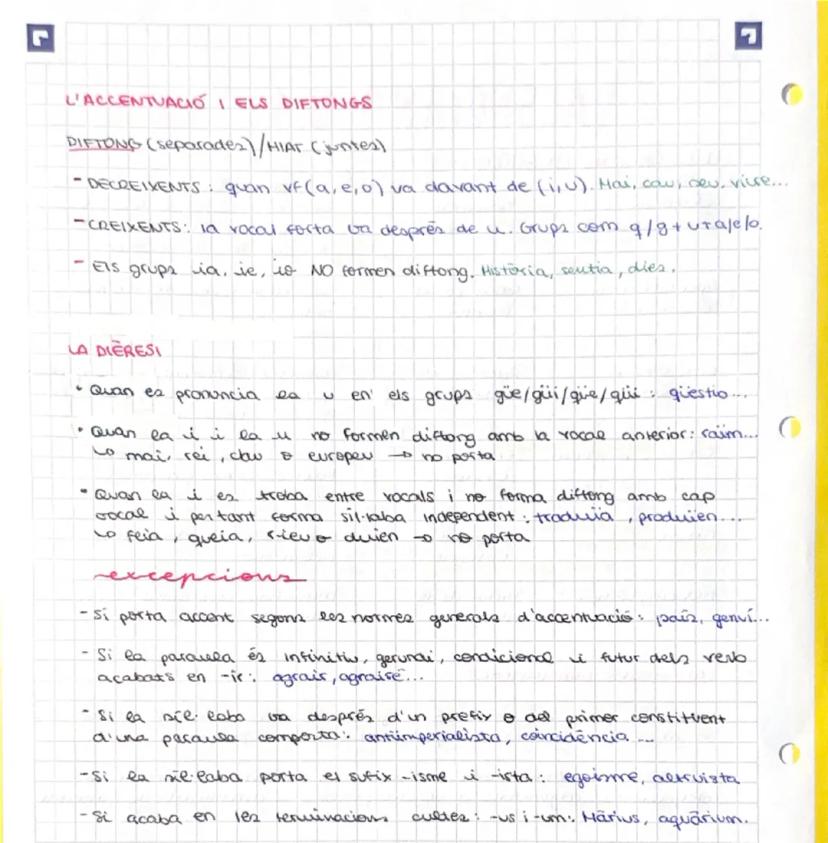 L'ACCENTUACIÓ I ELS DIFTONGS
DIFTONG (separades)/HIAT (juntes)
- DECREIXENTS: quan vf (a, e, o) va davant de (i, u). Mai, cau, seu, viure...
- CREIXENTS: la vocal forta va després de u. Grups com q/g + u + a/e/o.
- Els grups ia, ie, io NO formen diftong. Història, sentia, dies.
LA DIÈRESI
• Quan es pronuncia la u en els grups güe/güi/qüe/qüi: qüestio...
• Quan la i i la u no formen diftong amb la vocal anterior: raïm...
↳ mai, rei, clau o europeu → no porta
• Quan la i es troba entre vocals i no forma diftong amb cap
vocal i per tant forma síl·laba independent: traduïa, produïen...
↳ feia, queia, o duien → no porta
excepcions
- Si porta accent segons les normes generals d'accentuació: país, genuí...
- Si la paraula és infinitiu, gerundi, condicional i futur dels verb
acabats en -ir: agrair, agrairé...
- Si la síl·laba va després d'un prefix o del primer constituent
d'una paraula composta: antiimperialista, coincidència...
- Si la síl·laba porta el sufix -isme i -ista: egoisme, altruista
- Si acaba en les terminacions cultes: -us i -um: Màrius, aquàrium.